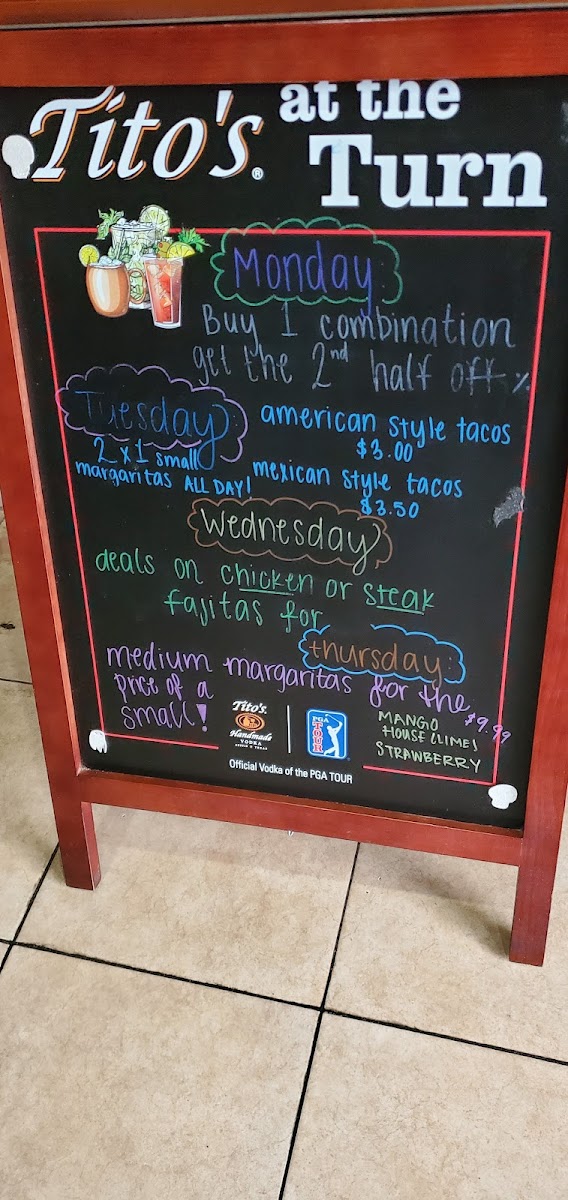 Tito's® at the
Turn
Monday:
Buy 1 combination
get the 2nd half off %
Tuesday:
2 x 1 small
margaritas ALL DAY!
american style tacos
$3.00
mexican style tacos
$3.50
Wednesday:
deals on chicken or steak
fajitas for
thursday:
medium margaritas for the
price of a
small!
$9.99
MANGO
HOUSE (LIME)
STRAWBERRY
Tito's
Handmade
VODKA
AUSTIN TEXAS
PGA
TOUR
Official Vodka of the PGA TOUR